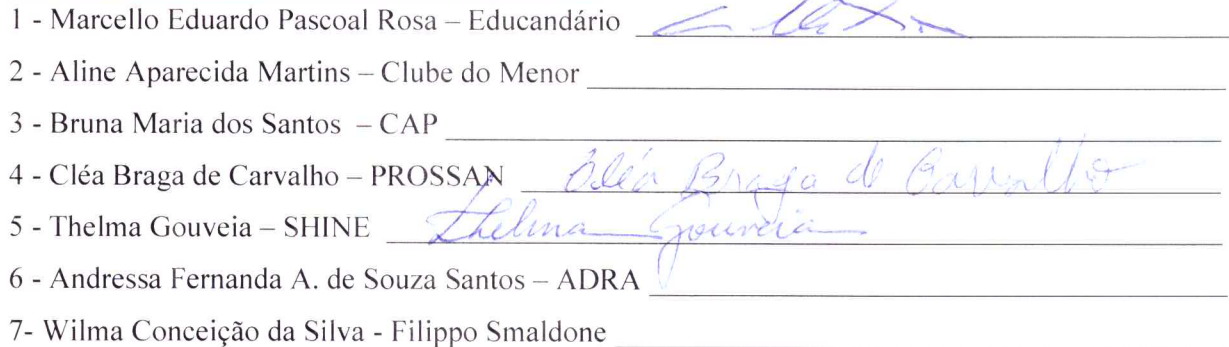 1 - Marcello Eduardo Pascoal Rosa – Educandário
2 - Aline Aparecida Martins – Clube do Menor
3 - Bruna Maria dos Santos – CAP
4 - Cléa Braga de Carvalho – PROSSAN Cléa Braga de Carvalho
5 - Thelma Gouveia – SHINE Thelma Gouveia
6 - Andressa Fernanda A. de Souza Santos – ADRA
7- Wilma Conceição da Silva - Filippo Smaldone